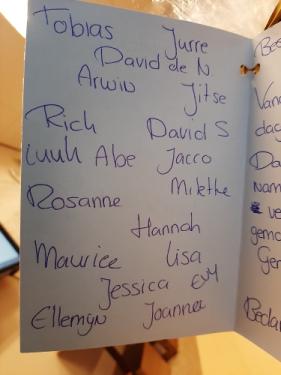 Tobias Jurre
David de N.
Arwin Jitse
Rich David S
Luuk Abe Jacco
Rosanne
Hannah
Maurice Lisa
Jessica
Ellemijn
Bes
Van
dag
Da
nam
ve
gema
Ger
Bedan